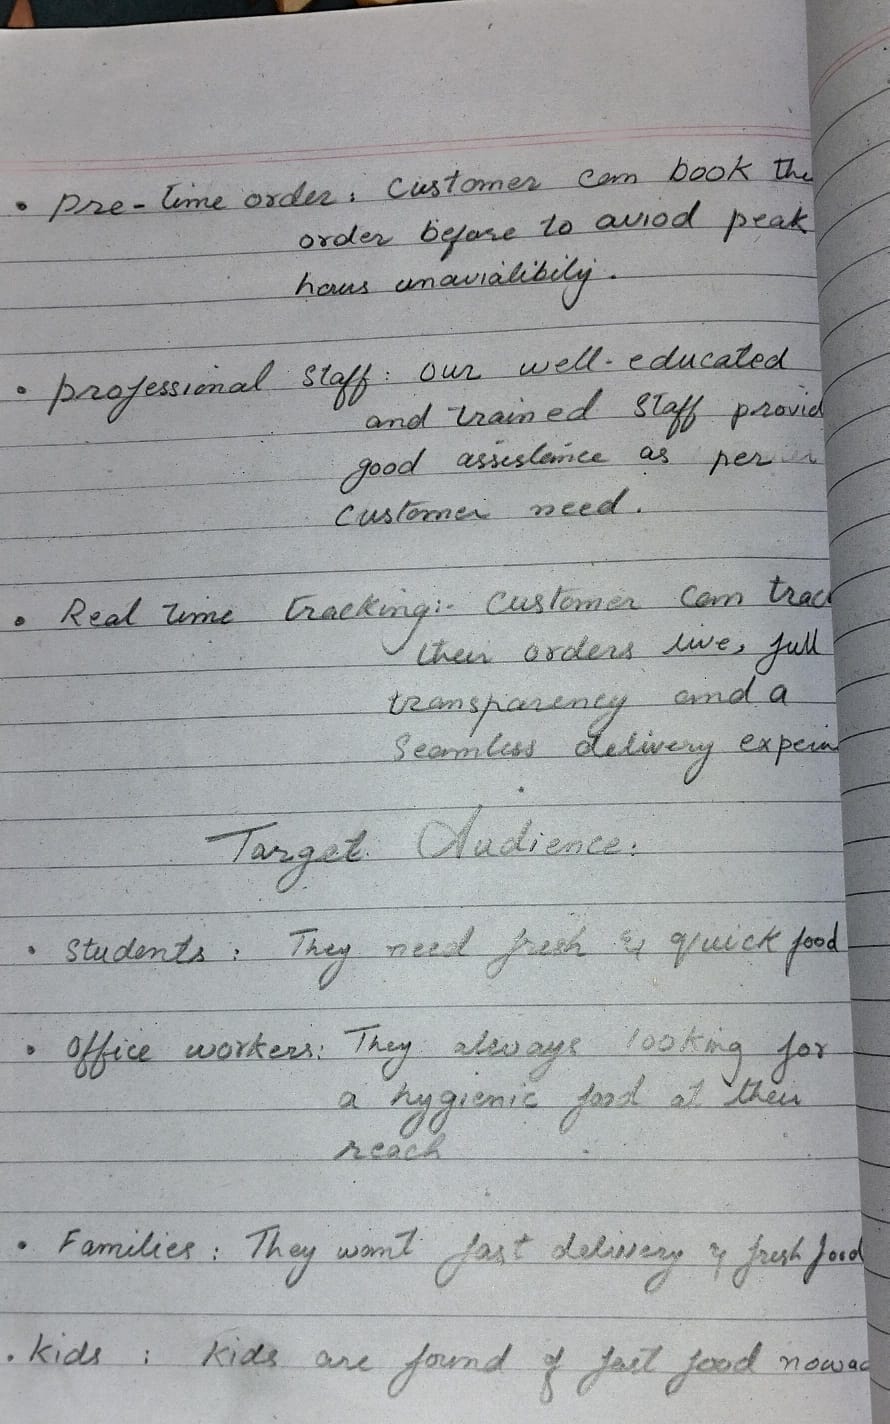 • Pre-time order: Customer can book the
order before to aviod peak
hours unavialibily.
• professional staff: our well-educated
and trained staff provid
good assistance as per
customer need.
• Real time tracking:- Customer can trac
their orders live, full
transparency and a
seamless delivery experi
Target Audience:
• Students: They need fresh & quick food
• Office workers: They always looking for
a hygienic food at their
reach
• Families: They want fast delivery & fresh food
• Kids: Kids are found of fast food nowad